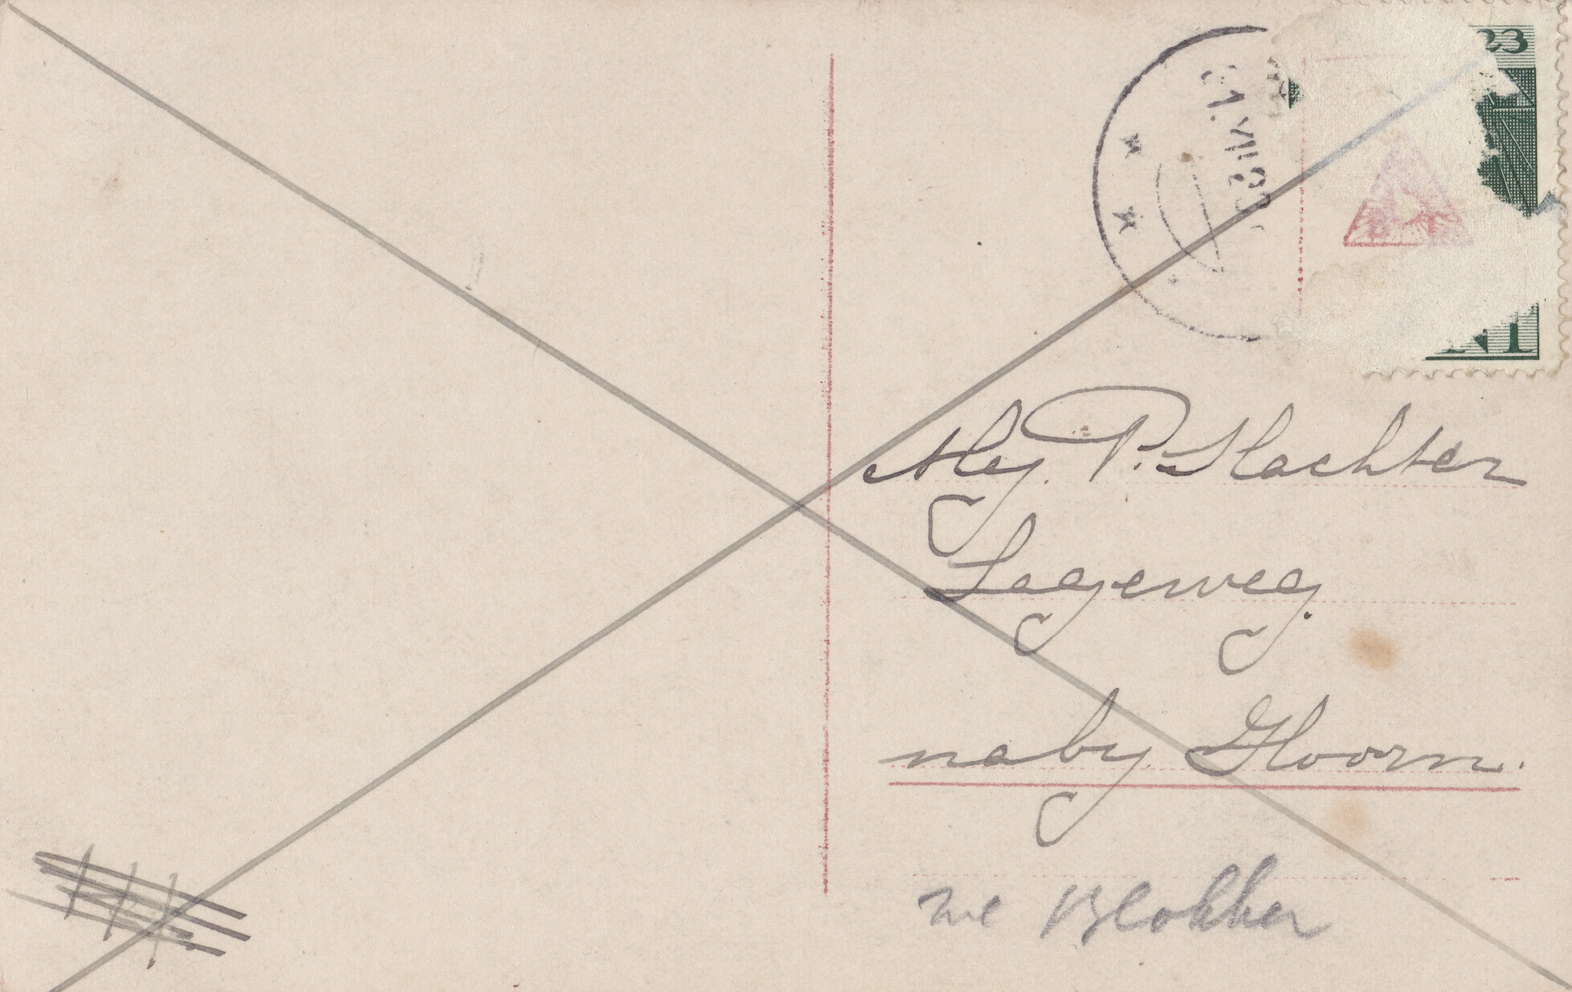 23
1.VII 23
NT
Mej. P. Slachter
Lageweg.
naby Hoorn.
Blokker